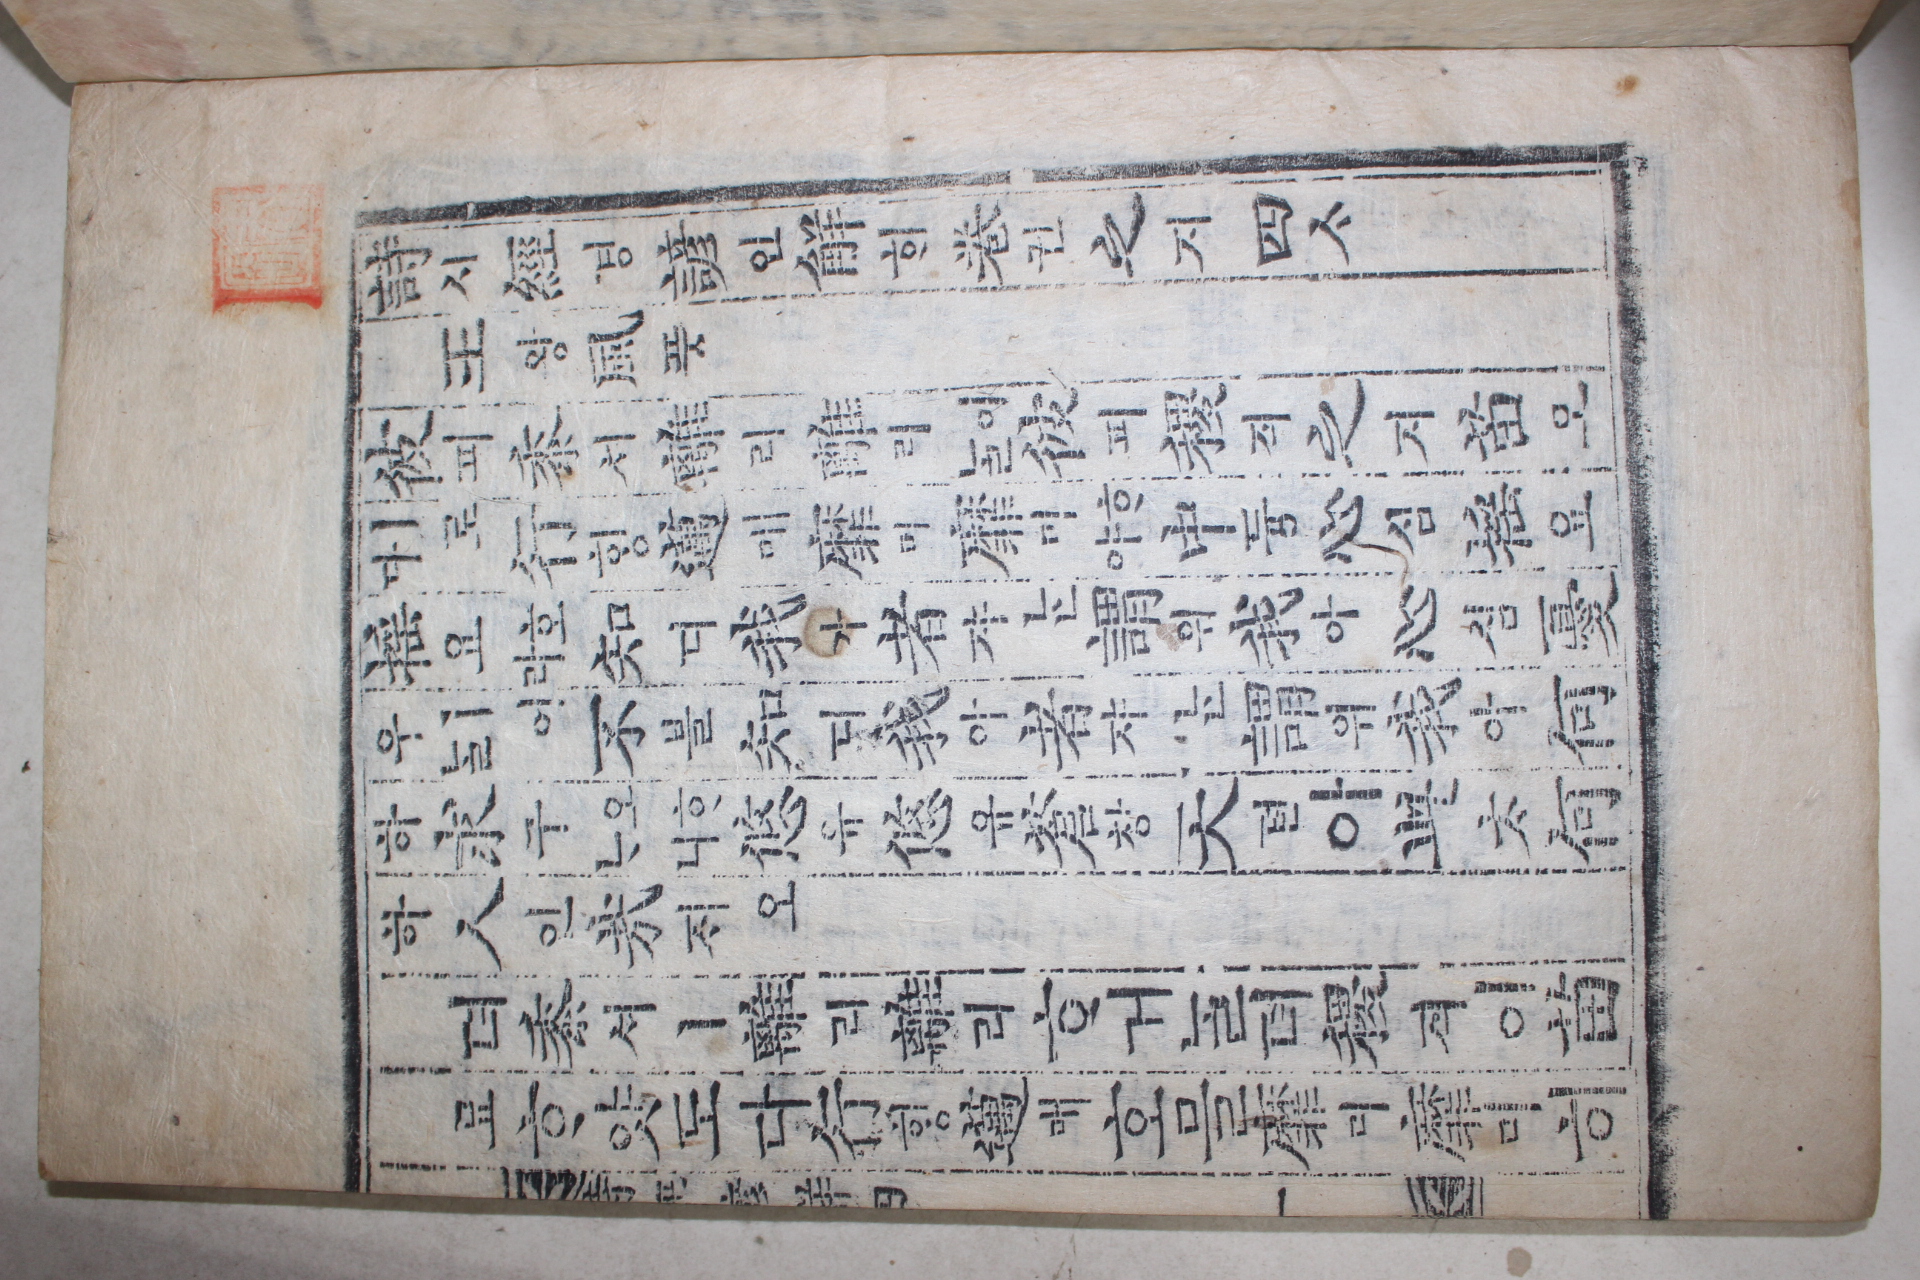 詩시經경諺언解ᄒᆡ卷권之지四ᄉᆞ
王왕風풍
彼피黍셔離리離리어ᄂᆞᆯ彼피稷직之지苗묘
로다行ᄒᆡᆼ邁매靡미靡미ᄒᆞ야中듕心심搖요
搖요호라知디我아者쟈ᄂᆞᆫ謂위我아心심憂
우ㅣ어ᄂᆞᆯ不블知디我아者쟈ᄂᆞᆫ謂위我아何
하求구오ᄒᆞᄂᆞ니悠유悠유蒼창天텬아此ᄎᆞ何
하人인哉ᄌᆡ오
뎌黍셔ㅣ離리離리ᄒᆞ거ᄂᆞᆯ뎌稷직이苗
묘ᄒᆞ얏도다行ᄒᆡᆼ邁매홈을靡미靡미ᄒᆞ